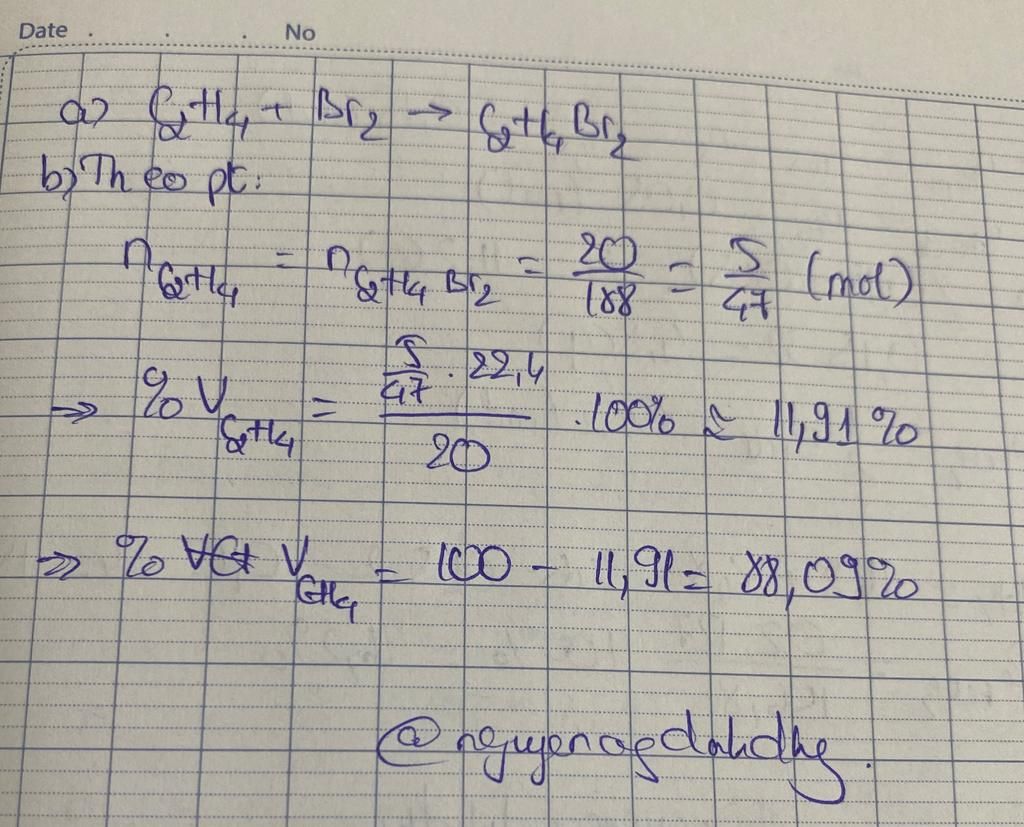 Date . . . No
a) C₂H₄ + Br₂ → C₂H₄Br₂
b) Theo pt:
n C₂H₄ = n C₂H₄Br₂ = 20/188 = 5/47 (mol)
⇒ %V C₂H₄ = (5/47 . 22,4)/20 .100% ≈ 11,91%
⇒ % V CH₄ = 100 - 11,91 = 88,09%